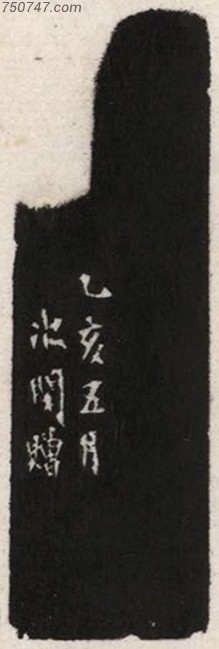 750747.com
乙亥五月
冰閑贈